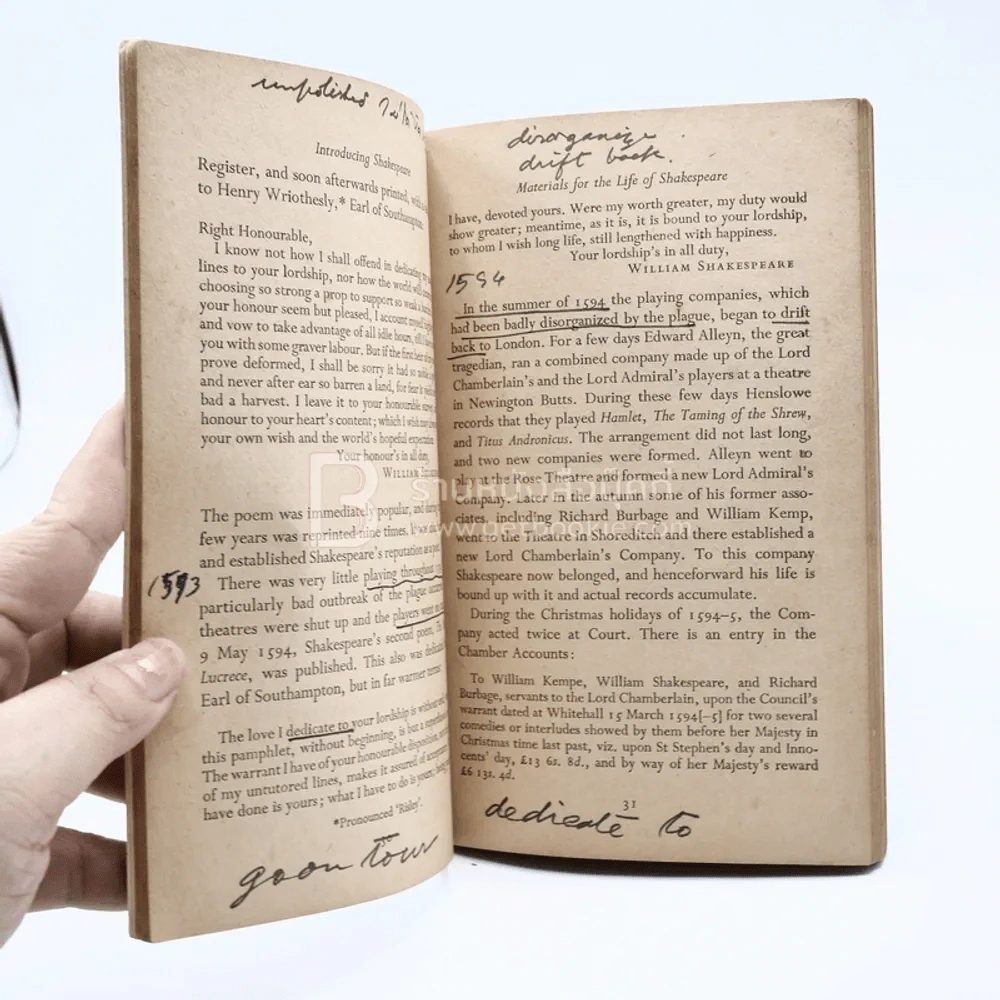 unpolished
Introducing Shakespeare
Register, and soon afterwards printed, with
to Henry Wriothesly,* Earl of Southampton:
Right Honourable,
I know not how I shall offend in dedicating my
lines to your lordship, nor how the world will
choosing so strong a prop to support so weak a
your honour seem but pleased, I account myself
and vow to take advantage of all idle hours, till I
you with some graver labour. But if the first heir of
prove deformed, I shall be sorry it had so noble
and never after ear so barren a land, for fear it yield
bad a harvest. I leave it to your honourable survey,
honour to your heart's content; which I wish may
your own wish and the world's hopeful expectation.
Your honour's in all duty,
WILLIAM
The poem was immediately popular, and during
few years was reprinted nine times. It
and established Shakespeare's reputation as a
1593
There was very little playing throughout
particularly bad outbreak of the plague
theatres were shut up and the players went
9 May 1594, Shakespeare's second poem, The
Lucrece, was published. This also was dedicated
Earl of Southampton, but in far warmer terms:
The love I dedicate to your lordship is without end;
this pamphlet, without beginning, is but a superfluous
The warrant I have of your honourable disposition,
of my untutored lines, makes it assured of acceptance.
have done is yours; what I have to do is yours; being
*Pronounced 'Risley'.
go on tour
disorganize
drift back.
Materials for the Life of Shakespeare
I have, devoted yours. Were my worth greater, my duty would
show greater; meantime, as it is, it is bound to your lordship,
to whom I wish long life, still lengthened with happiness.
Your lordship's in all duty,
WILLIAM SHAKESPEARE
1594
In the summer of 1594 the playing companies, which
had been badly disorganized by the plague, began to drift
back to London. For a few days Edward Alleyn, the great
tragedian, ran a combined company made up of the Lord
Chamberlain's and the Lord Admiral's players at a theatre
in Newington Butts. During these few days Henslowe
records that they played Hamlet, The Taming of the Shrew,
and Titus Andronicus. The arrangement did not last long,
and two new companies were formed. Alleyn went to
play at the Rose Theatre and formed a new Lord Admiral's
Company. Later in the autumn some of his former asso-
ciates, including Richard Burbage and William Kemp,
went to the Theatre in Shoreditch and there established a
new Lord Chamberlain's Company. To this company
Shakespeare now belonged, and henceforward his life is
bound up with it and actual records accumulate.
During the Christmas holidays of 1594–5, the Com-
pany acted twice at Court. There is an entry in the
Chamber Accounts:
To William Kempe, William Shakespeare, and Richard
Burbage, servants to the Lord Chamberlain, upon the Council's
warrant dated at Whitehall 15 March 1594[–5] for two several
comedies or interludes showed by them before her Majesty in
Christmas time last past, viz. upon St Stephen's day and Inno-
cents' day, £13 6s. 8d., and by way of her Majesty's reward
£6 13s. 4d.
31
dedicate to
ร้านหนังสือเก็ทบุ๊คกี้
www.getbookie.com